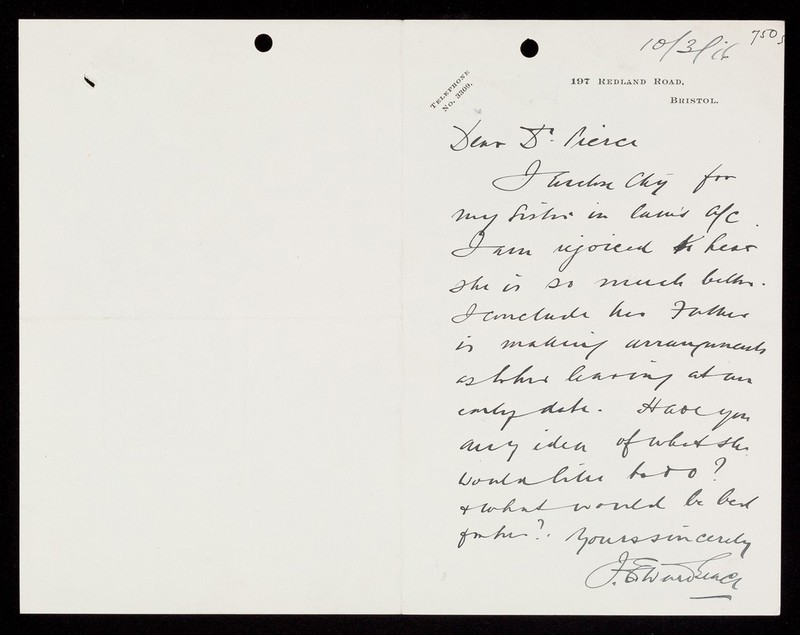 7505
10/3/16
TELEPHONE
No. 3309.
197 REDLAND ROAD,
BRISTOL.
Dear Dr. Pierce
I Enclose Chq for
my Sister in law's a/c.
I am rejoiced to hear
she is so much better.
I conclude her Father
is making arrangements
as to her leaving at an
early date. Have you
any idea of what she
would like to do?
& what would be best
for her? Yours sincerely